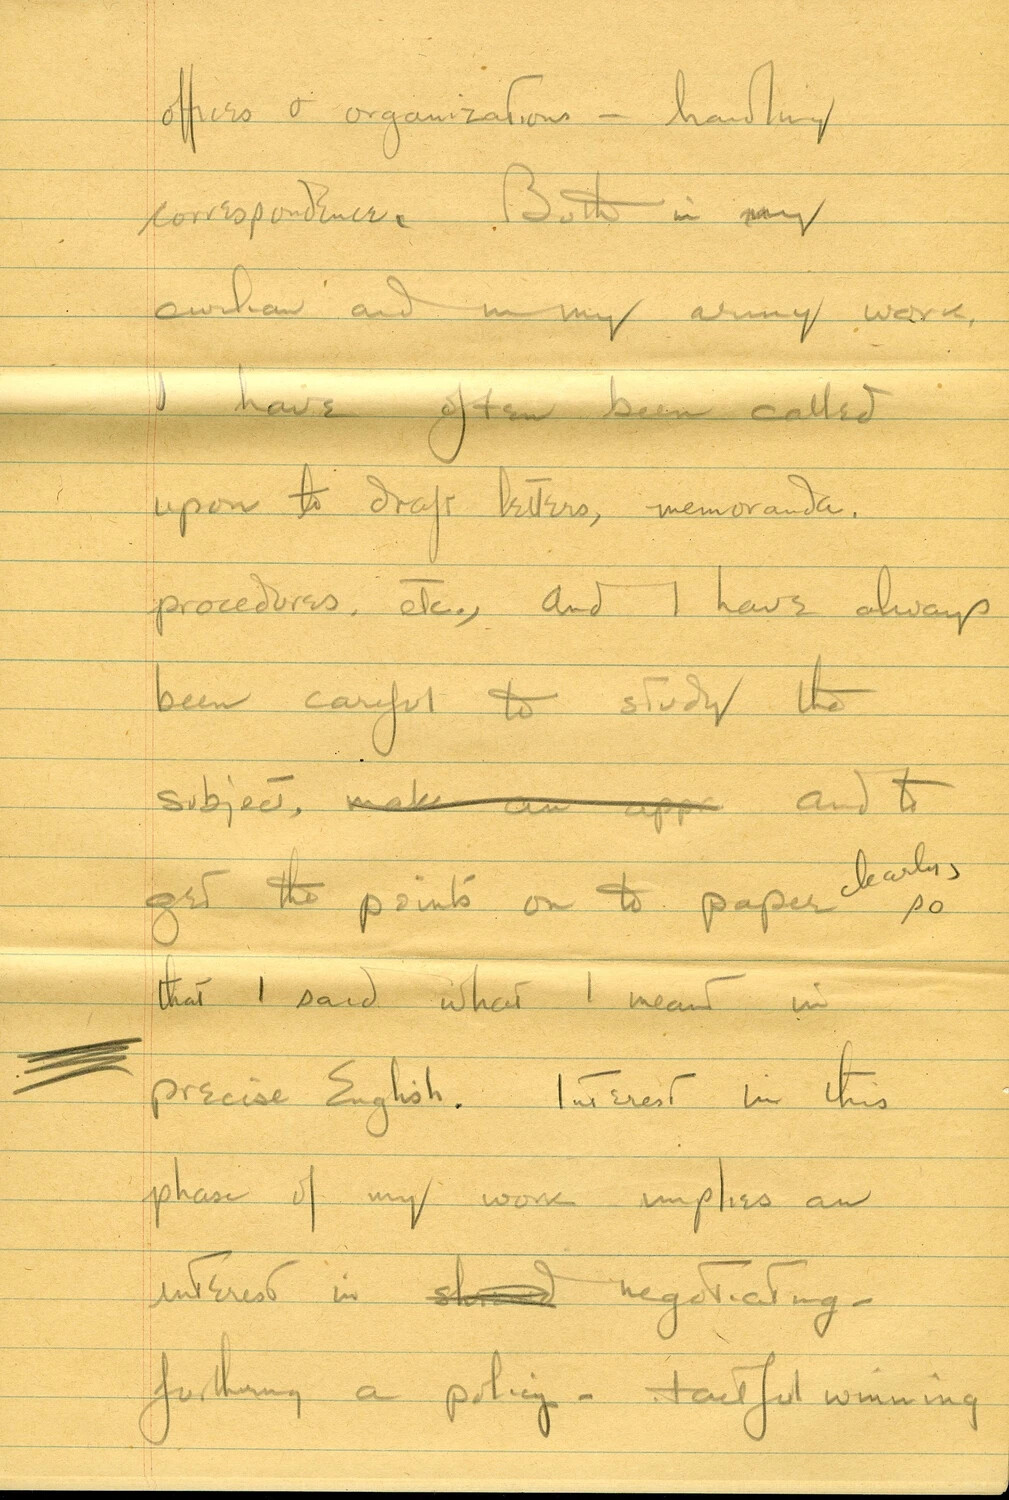 offices & organizations – handling
correspondence. Both in my
civilian and in my army work,
I have often been called
upon to draft letters, memoranda,
procedures, etc., and I have always
been careful to study the
subject, make an appr and to
get the points on to paper clearly,
so
that I said what I meant in
precise English. Interest in this
phase of my work implies an
interest in negotiating –
furthering a policy – tactful winning